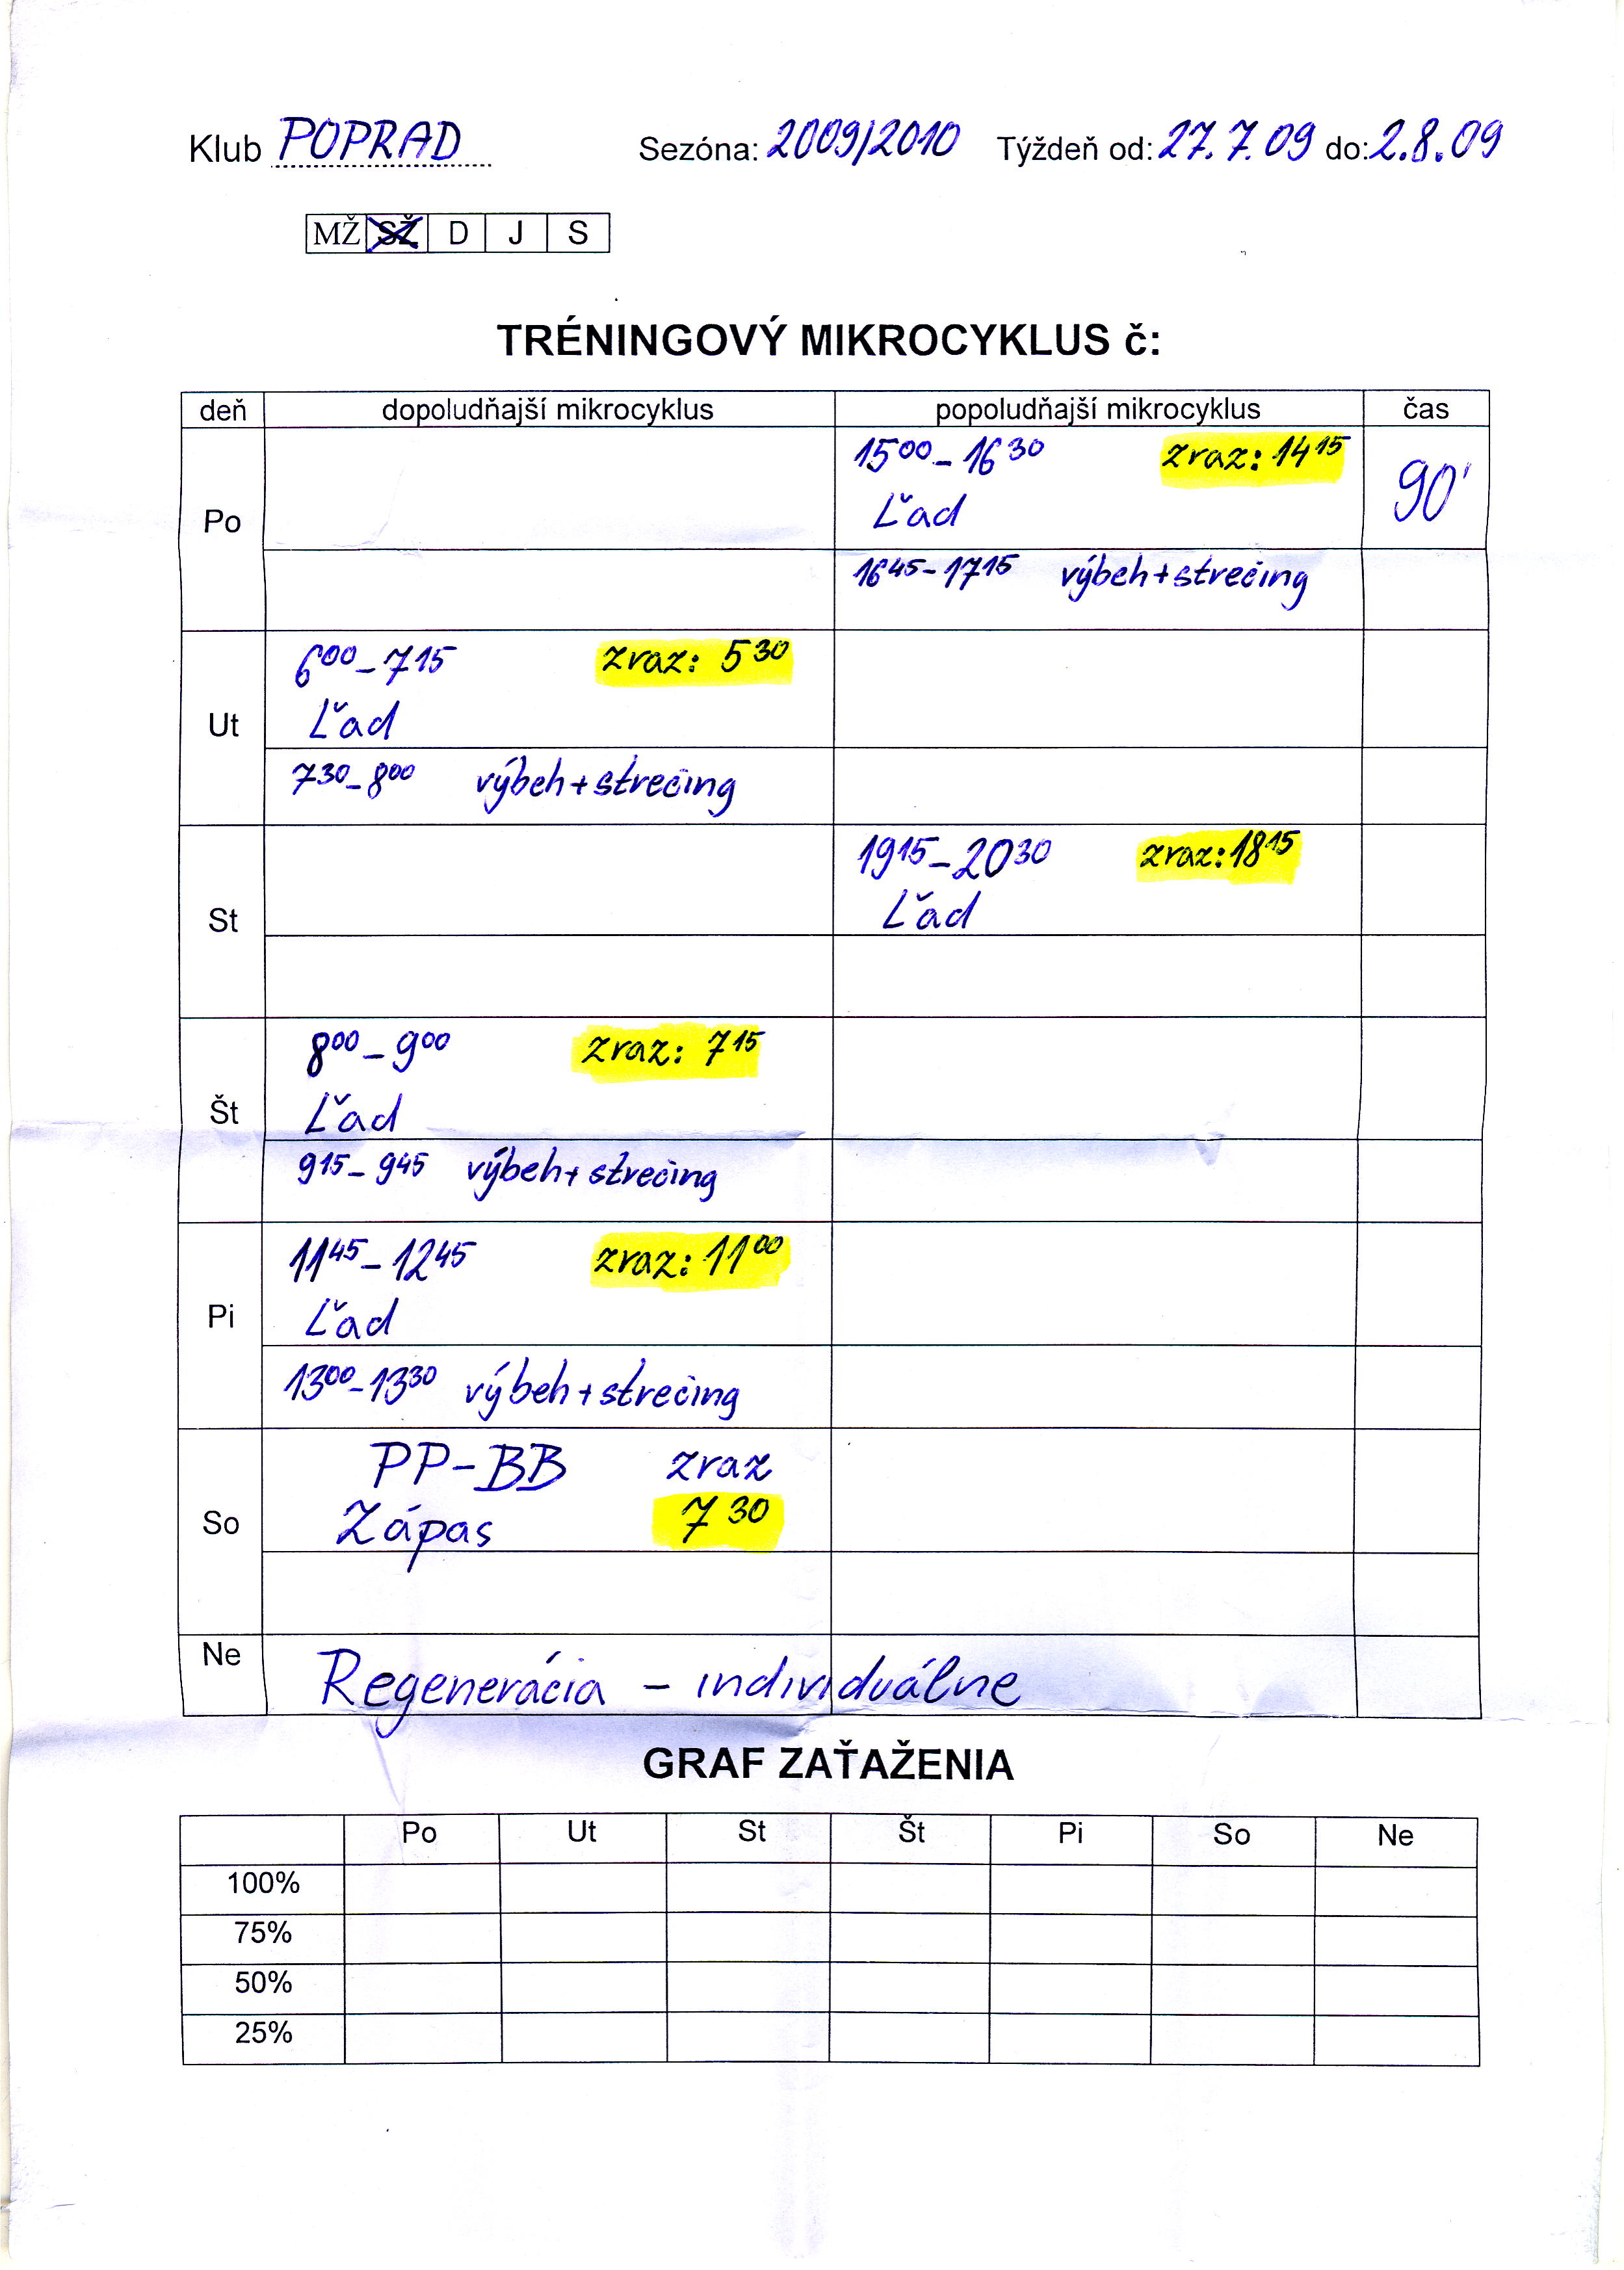 Klub POPRAD Sezóna: 2009/2010 Týždeň od: 27.7.09 do: 2.8.09
MŽ SŽ D J S
TRÉNINGOVÝ MIKROCYKLUS č:
deň dopoludňajší mikrocyklus popoludňajší mikrocyklus čas
Po 1500-1630 zraz: 1415 90'
Ľad
1645-1715 výbeh+strečing
Ut 600-715 zraz: 530
Ľad
730-800 výbeh+strečing
St 1915-2030 zraz: 1815
Ľad
Št 800-900 zraz: 715
Ľad
915-945 výbeh+strečing
Pi 1145-1245 zraz: 1100
Ľad
1300-1330 výbeh+strečing
So PP-BB zraz
Zápas 730
Ne Regenerácia - individuálne
GRAF ZAŤAŽENIA
Po Ut St Št Pi So Ne
100%
75%
50%
25%